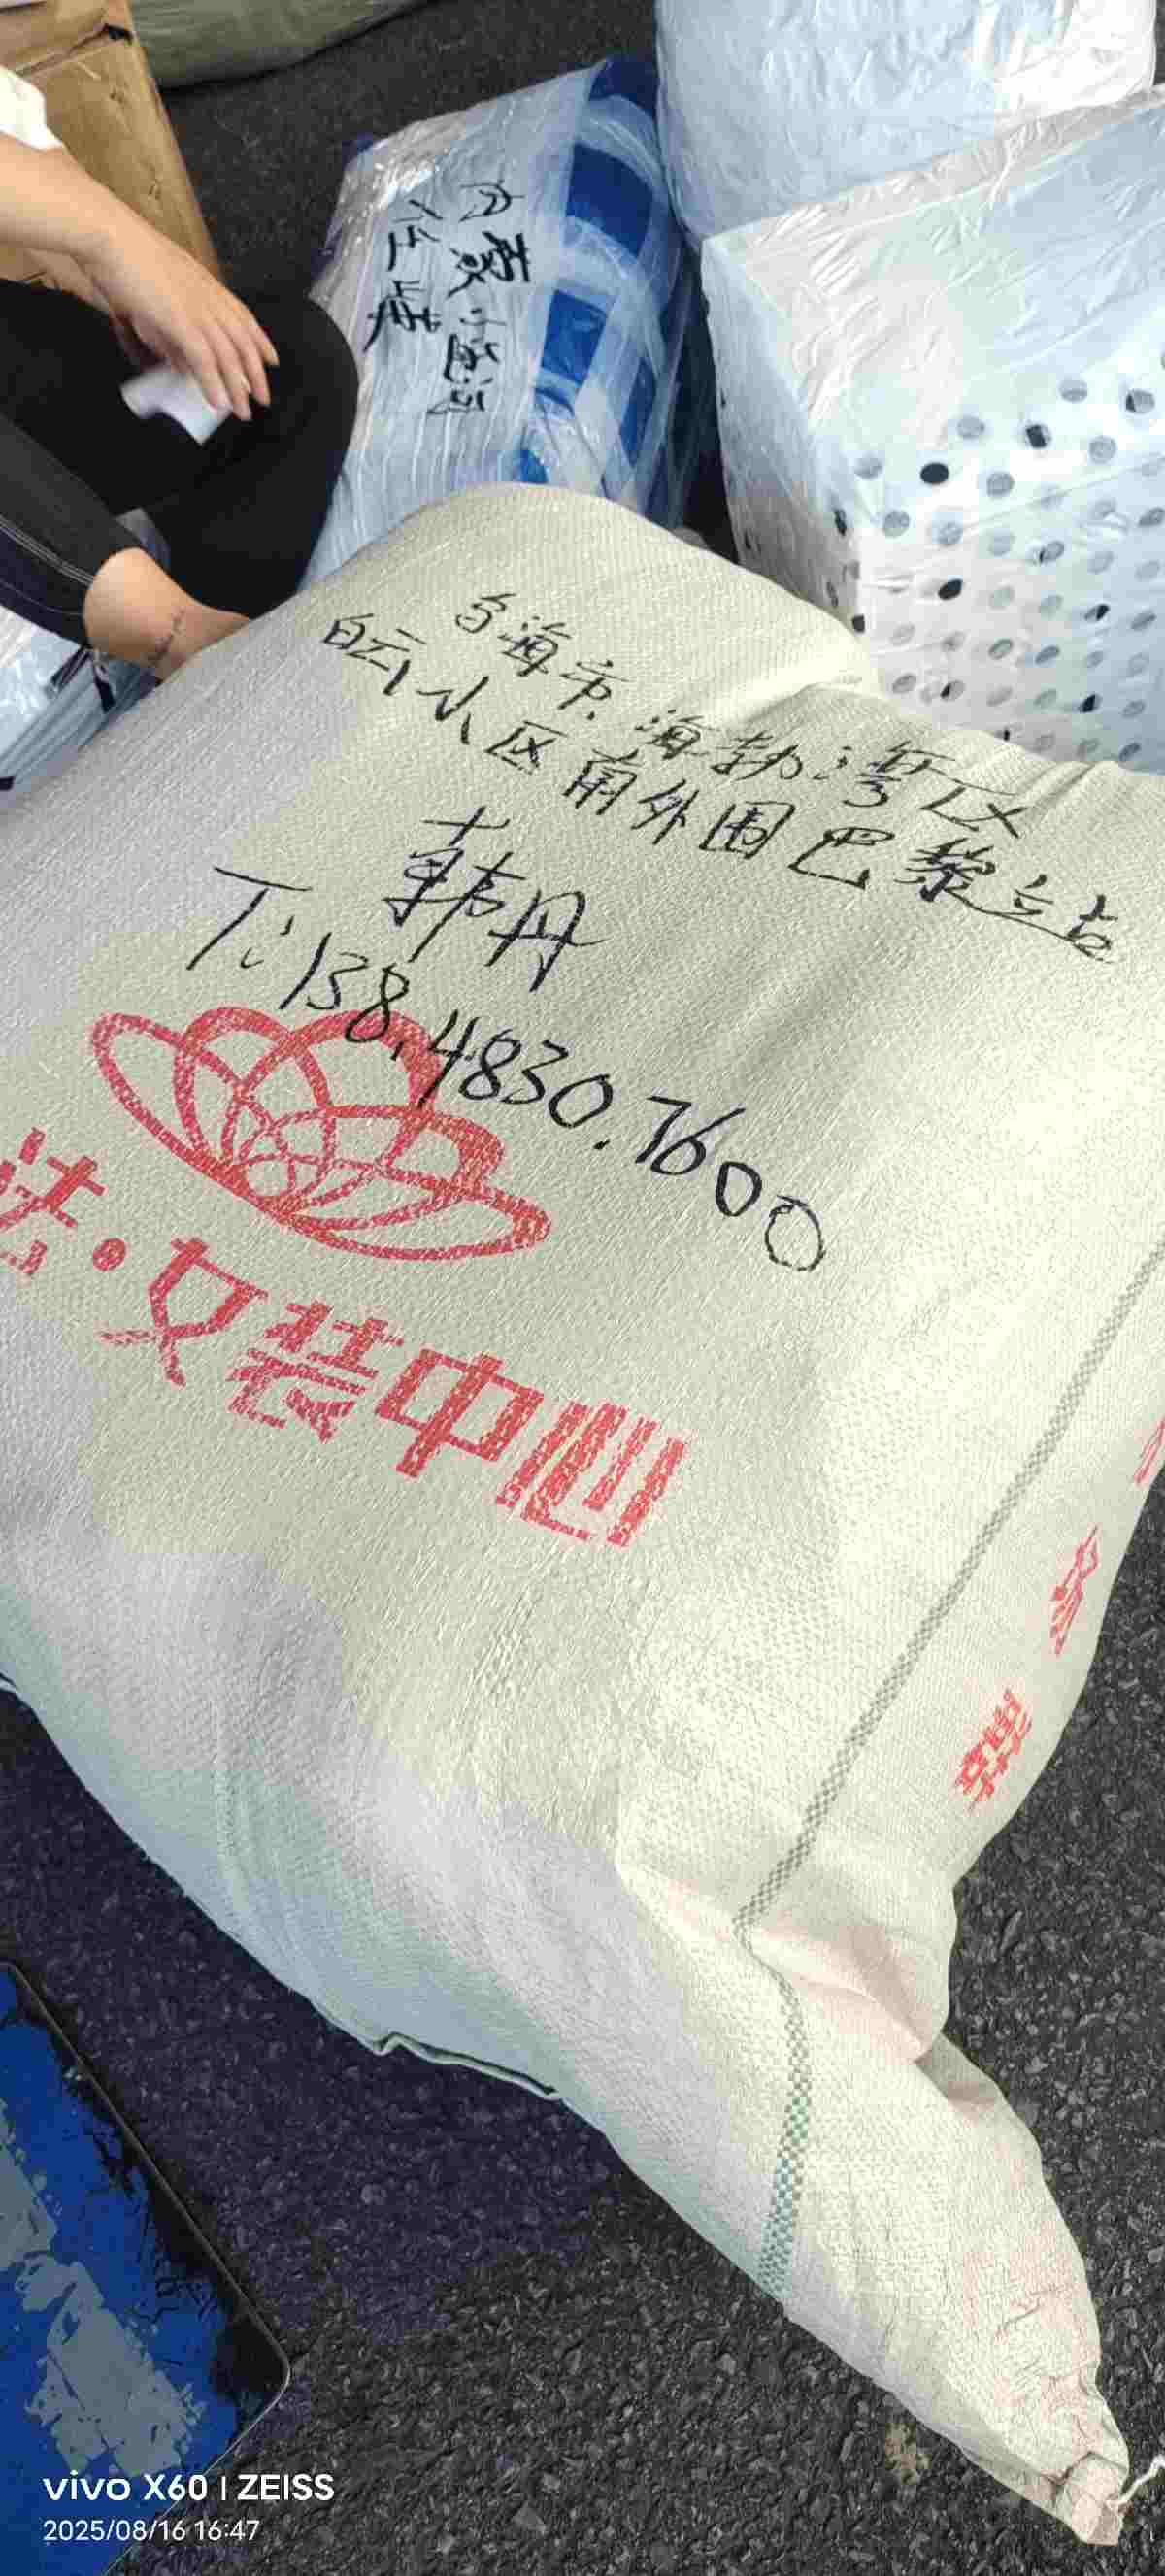 乌海市.海勃湾区
白云小区南外围巴黎立占
韩丹
T:138.4830.7600
法·女装中心
vivo X60 | ZEISS
2025/08/16 16:47